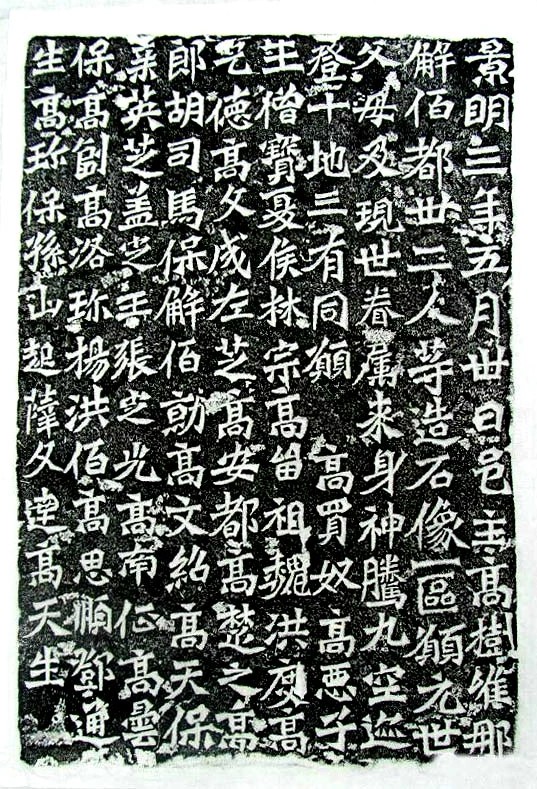 景明三年五月卅日邑主高樹維那
解佰都卅二人等造石像一區願元世
父母及現世眷属来身神騰九空迹
登十地三有同願　高買奴　高惡子
王僧寶夏侯林宗高留祖魏洪度高
乞德高文成左芝高安都高楚之高
郎胡司馬保解佰勍高文紹高天保
英芝盖定王張定光高南征高曇
保高副高洛珎楊洪佰高思順鄧通
生高珎保孫山起薛文達高天生